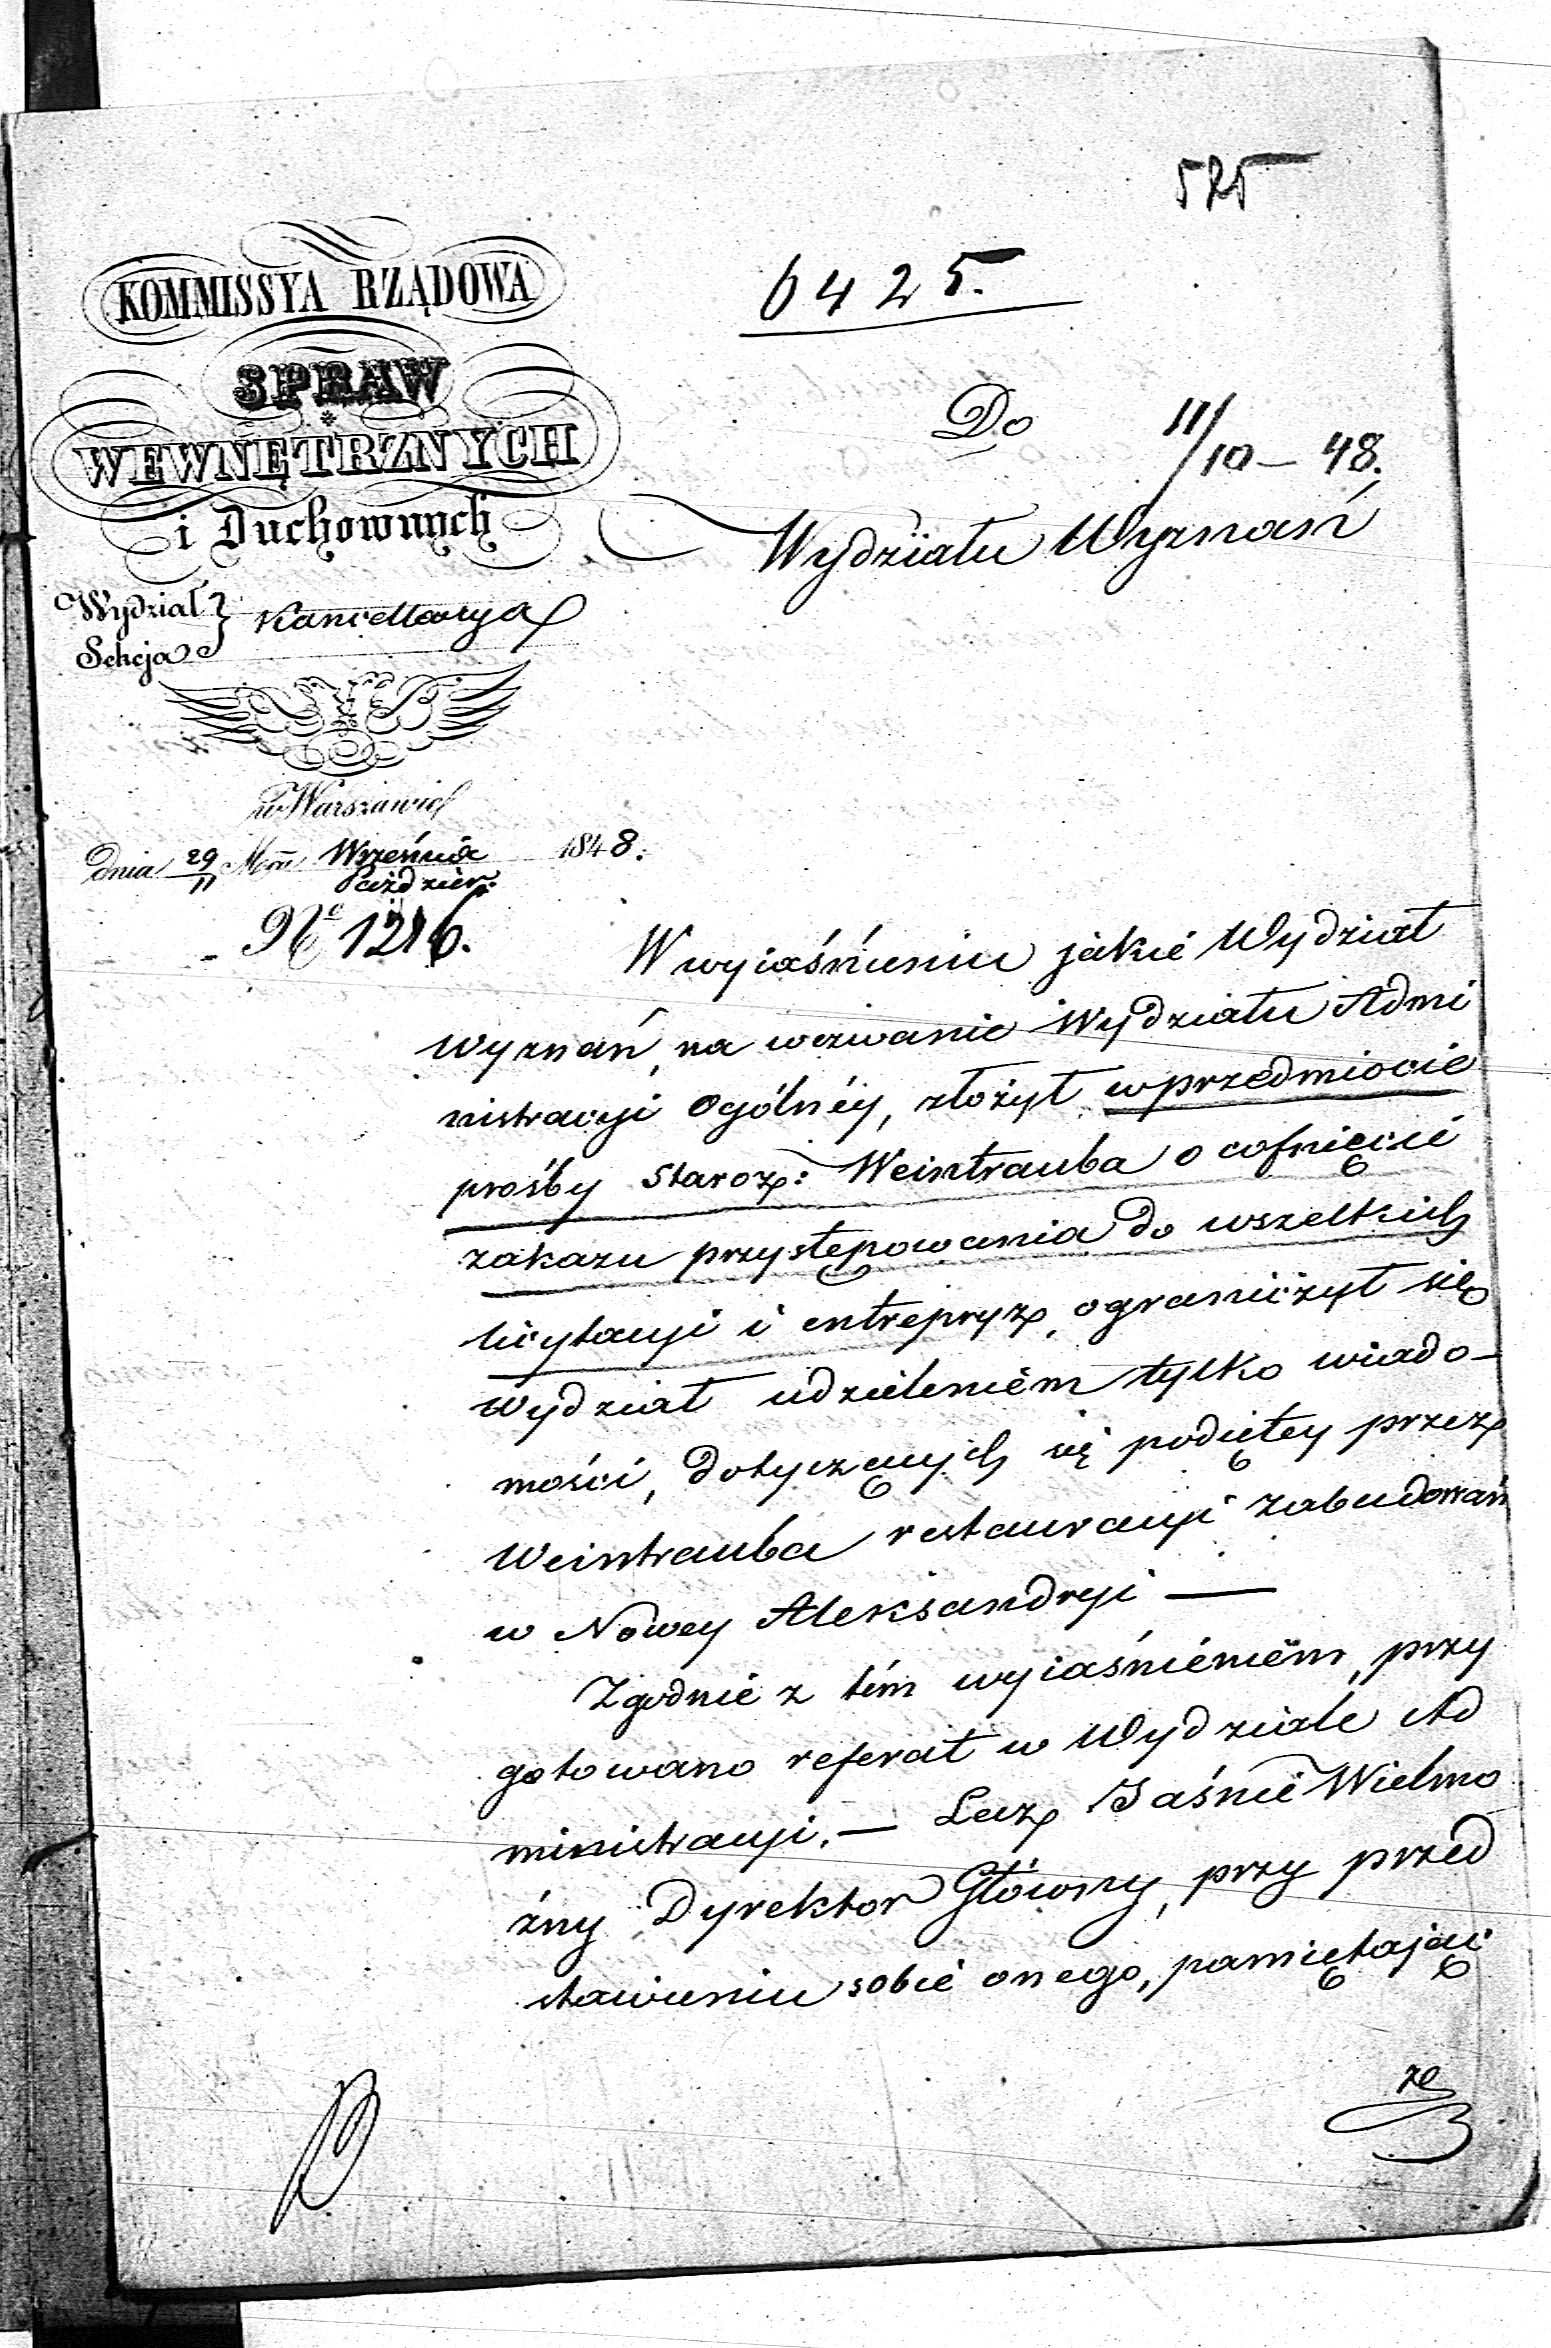 525
6425.
KOMMISSYA RZĄDOWA
SPRAW
WEWNĘTRZNYCH
i Duchownych
Wydział
Sekcja
Kancellarya
w Warszawie
dnia 29/11 Mca Września
Paździer:
1848.
No 1216.
Do
11/10 – 48.
Wydziału Wyznań
W wyiaśnieniu jakie Wydział
Wyznań, na wezwanie Wydziału Admi
nistracyi Ogólnéy, złożył w przedmiocie
prośby Staroz: Weintrauba o cofnięcie
zakazu przystępowania do wszelkich
licytacyi i entrepryz, ograniczył się
Wydział udzieleniem tylko wiado–
mości, dotyczących się podiętey przez
Weintrauba restauracyi zabudowań
w Nowey Aleksandryi —
Zgodnie z tém wyiaśnieniem, przy
gotowano referat w Wydziale Ad
ministracyi. — Lecz Jaśnie Wielmo
żny Dyrektor Główny, przy przed
stawieniu sobie onego, pamiętając
że